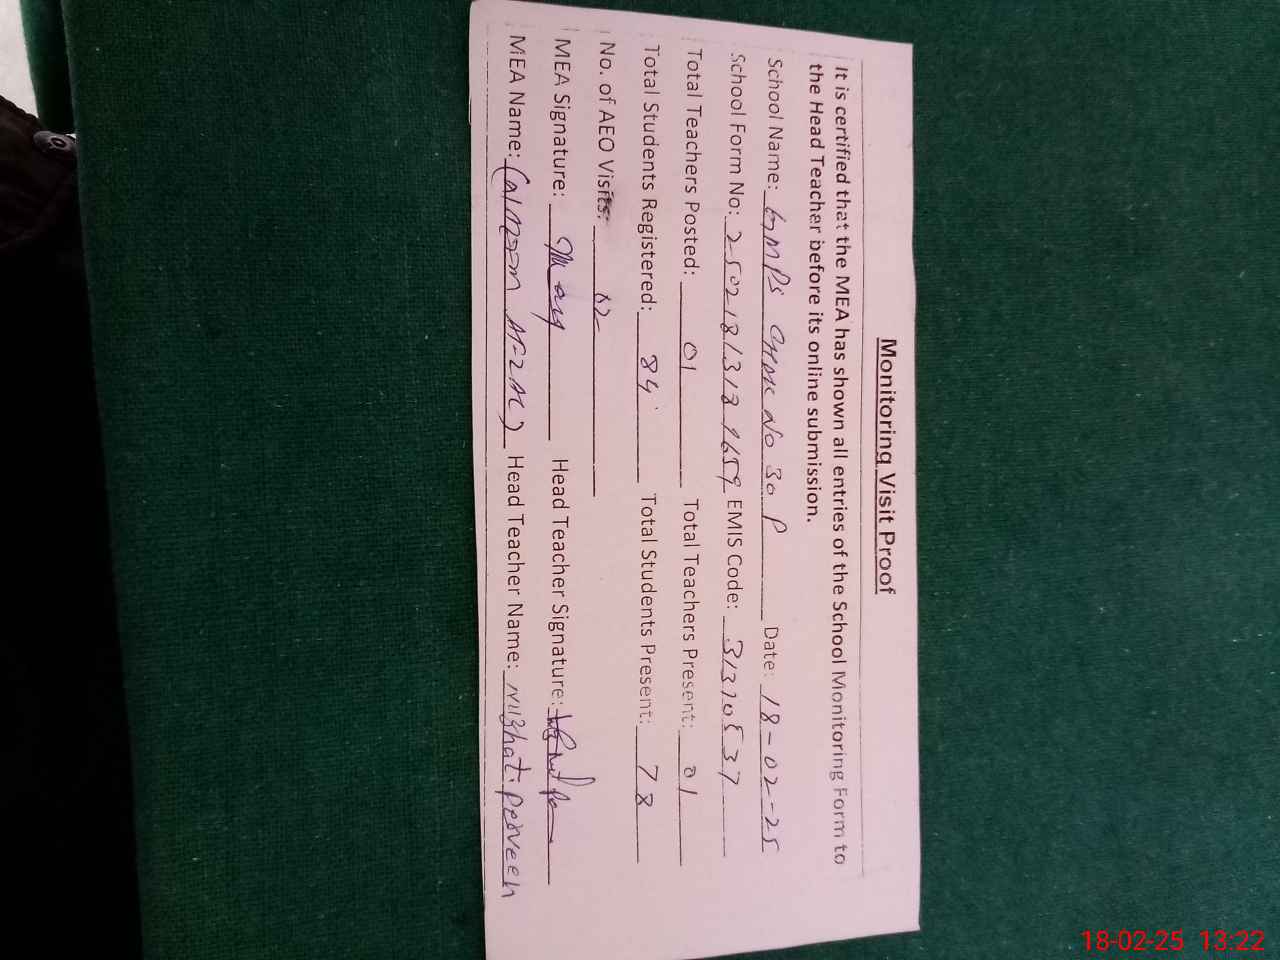 Monitoring Visit Proof
It is certified that the MEA has shown all entries of the School Monitoring Form to
the Head Teacher before its online submission.
School Name: GMPS No 30 P Date: 18-02-25
School Form No: EMIS Code: 31310537
Total Teachers Posted: 01 Total Teachers Present: 01
Total Students Registered: 84 Total Students Present: 78
No. of AEO Visits:
MEA Signature: Head Teacher Signature:
MEA Name: Head Teacher Name: Perveen
18-02-25 13:22